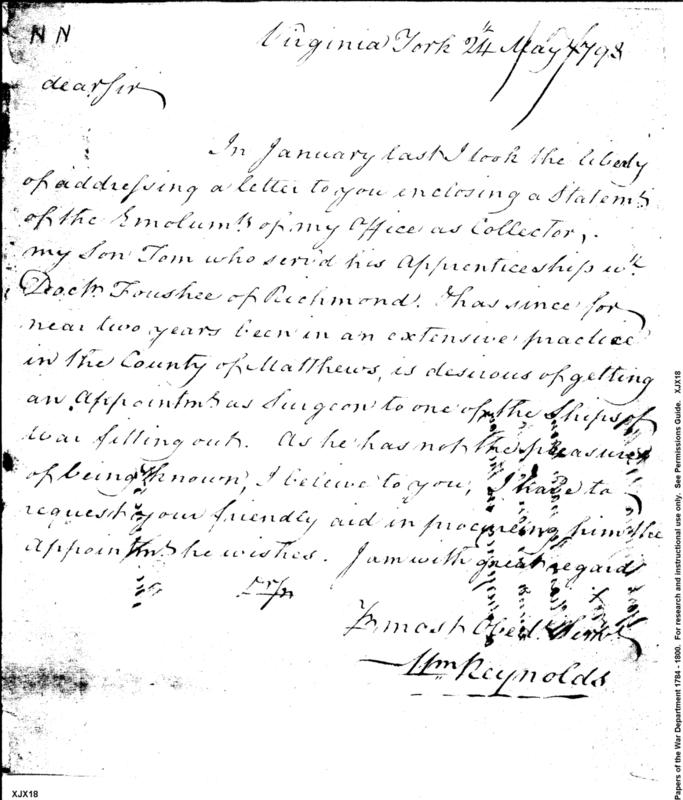 N N
Virginia York 24th May 1798
dear Sir
In January last I took the liberty
of addressing a letter to you enclosing a Statemt
of the Emolumts of my Office as Collector,
my Son Tom who serv'd his Apprenticeship wth
Doctr Foushee of Richmond. & has since for
near two years been in an extensive practice
in the County of Matthews, is desirous of getting
an Appointmt as Surgeon to one of the Ships of
War fitting out. As he has not the pleasure
of being known, I beleive to you, I have to
request your friendly aid in procureing him the
Appointmt he wishes. I am with great regard
Yr most Obedt Servt
Wm Reynolds
XJX18
Papers of the War Department 1784 - 1800. For research and instructional use only. See Permissions Guide. XJX18